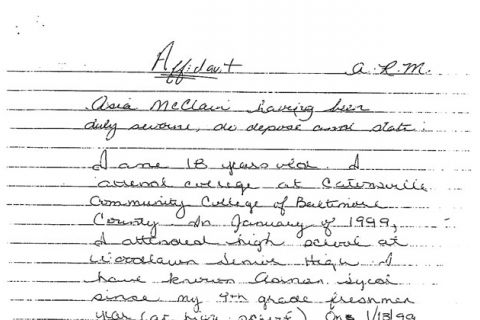 Affidavit A.R.M.
Asia McClain having been
duly sworne, do depose and state:
I am 18 years old. I
attend college at Catonsville
Community College of Baltimore
County. In January of 1999,
I attended high school at
Woodlawn Senior High. I
have known Adnan Syed
since my 9th grade freshmen
year (at high school). On 1/13/99